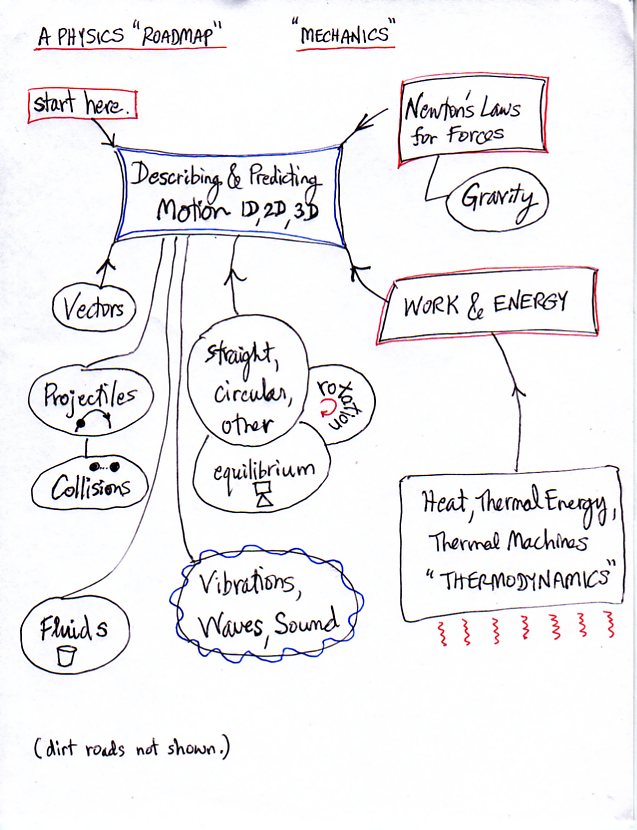 A PHYSICS "ROADMAP" "MECHANICS"
start here.
Newton's Laws
for Forces
Gravity
Describing & Predicting
Motion 1D, 2D, 3D
Vectors
WORK & ENERGY
straight,
circular,
other
rotation
Projectiles
equilibrium
Collisions
Heat, Thermal Energy,
Thermal Machines
"THERMODYNAMICS"
Vibrations,
Waves, Sound
Fluids
(dirt roads not shown.)